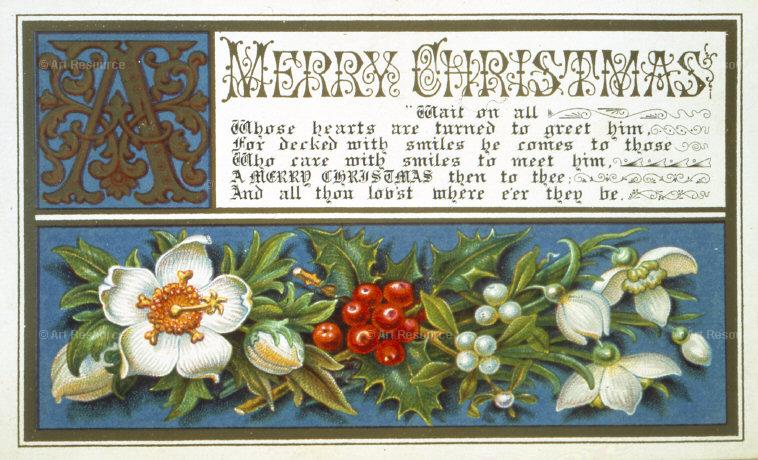 A MERRY CHRISTMAS
"Wait on all
Whose hearts are turned to greet him,
For decked with smiles he comes to those
Who care with smiles to meet him,
A MERRY CHRISTMAS then to thee;
And all thou lov'st where e'er they be.
© Art Resource
© Art Resource
© Art Resource
© Art Resource
© Art Resource
© Art Resou